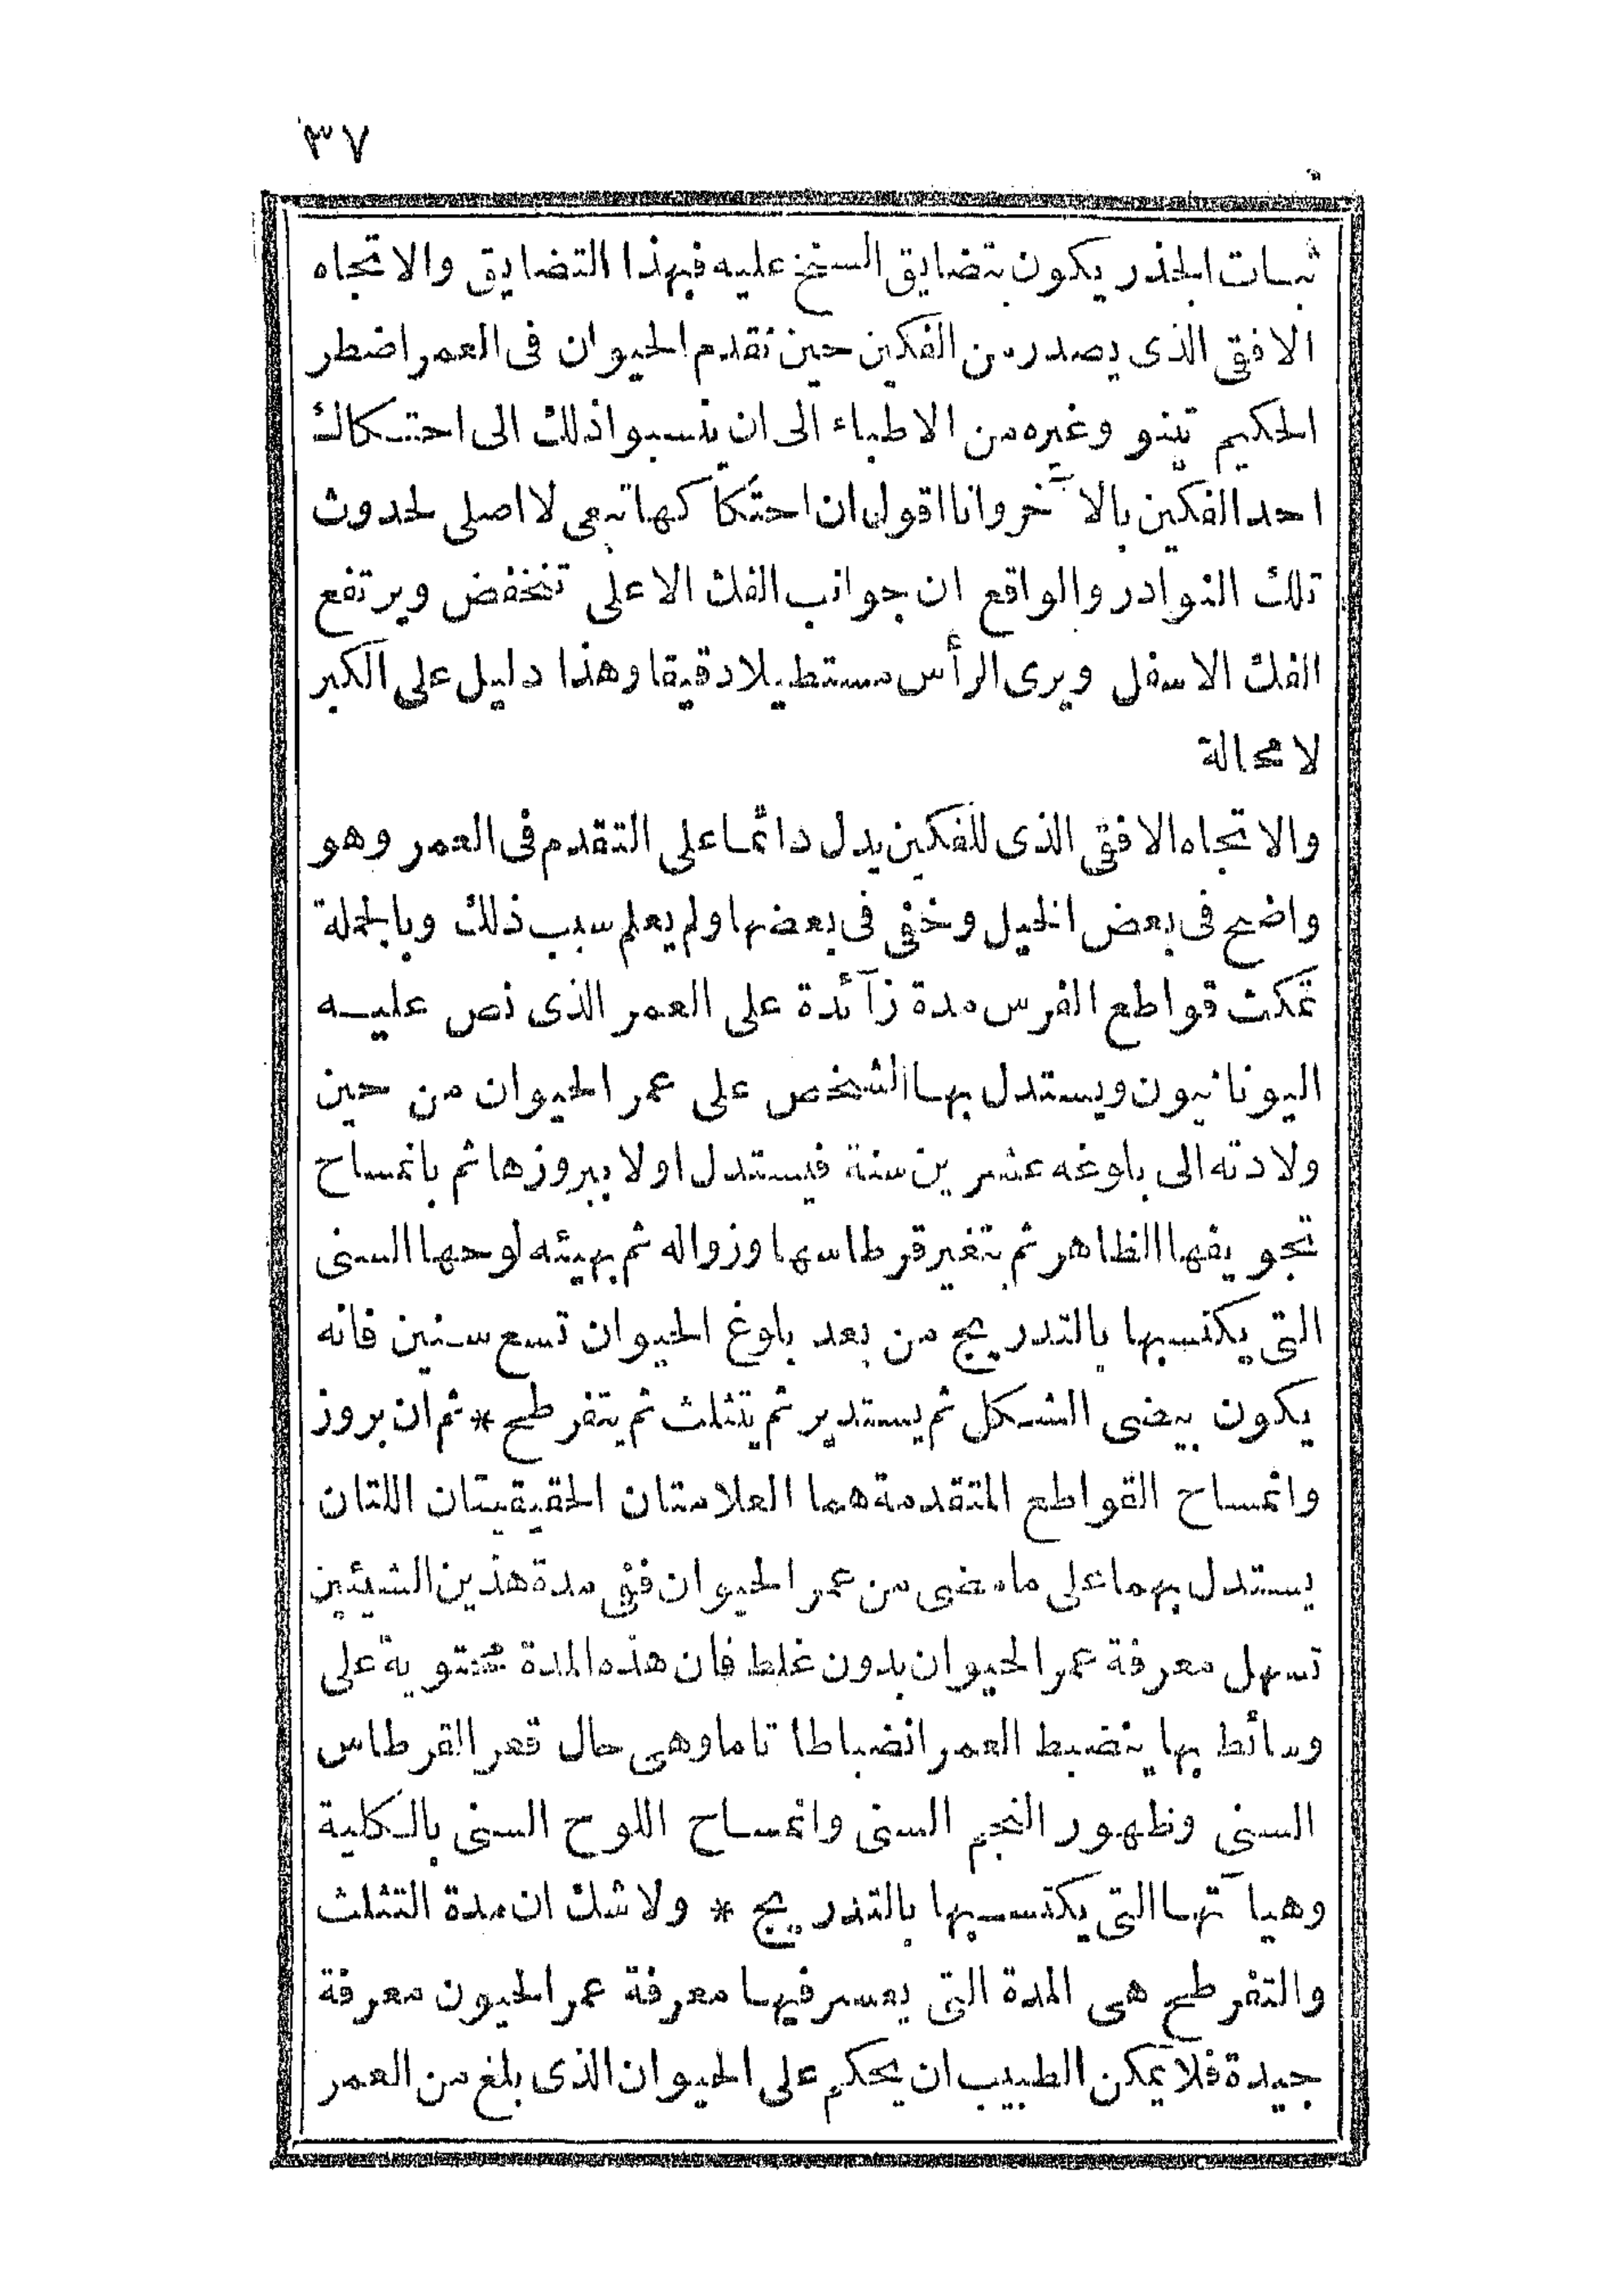 ٣٧
ثبات الجذر يكون بتضايق السنخ عليه فبهذا التضايق والاتجاه
الافقى الذى يصدر من الفكين حين تقدم الحيوان فى العمر اضطر
الحكيم تينو وغيره من الاطباء الى ان ينسبوا ذلك الى احتكاك
احد الفكين بالآخر وانا اقول ان احتكاكها تبعى لا اصلى لحدوث
تلك النوادر والواقع ان جوانب الفك الاعلى تنخفض ويرتفع
الفك الاسفل ويرى الرأس مستطيلا دقيقا وهذا دليل على الكبر
لا محالة
والاتجاه الافقى الذى للفكين يدل دائما على التقدم فى العمر وهو
واضح فى بعض الخيل وخفى فى بعضها ولم يعلم سبب ذلك وبالجملة
تمكث قواطع الفرس مدة زآئدة على العمر الذى نص عليه
اليونانيون ويستدل بها الشخص على عمر الحيوان من حين
ولادته الى بلوغه عشرين سنة فيستدل اولا ببروزها ثم بانمساح
تجويفها الظاهر ثم بتغير قرطاسها وزواله ثم بهيئه لوحها السنى
التى يكتسبها بالتدريج من بعد بلوغ الحيوان تسع سنين فانه
يكون بيضى الشكل ثم يستدير ثم يتثلث ثم يتفرطح * ثم ان بروز
وانمساح القواطع المتقدمة هما العلامتان الحقيقيتان اللتان
يستدل بهما على ما مضى من عمر الحيوان ففى مدة هذين الشيئين
تسهل معرفة عمر الحيوان بدون غلط فان هذه المدة محتوية على
وسائط بها ينضبط العمر انضباطا تاما وهى حال قعر القرطاس
السنى وظهور النجم السنى وانمساح اللوح السنى بالكلية
وهيآتها التى يكتسبها بالتدريج * ولا شك ان مدة التثلث
والتفرطح هى المدة التى يعسر فيها معرفة عمر الحيون معرفة
جيدة فلا يمكن الطبيب ان يحكم على الحيوان الذى بلغ من العمر